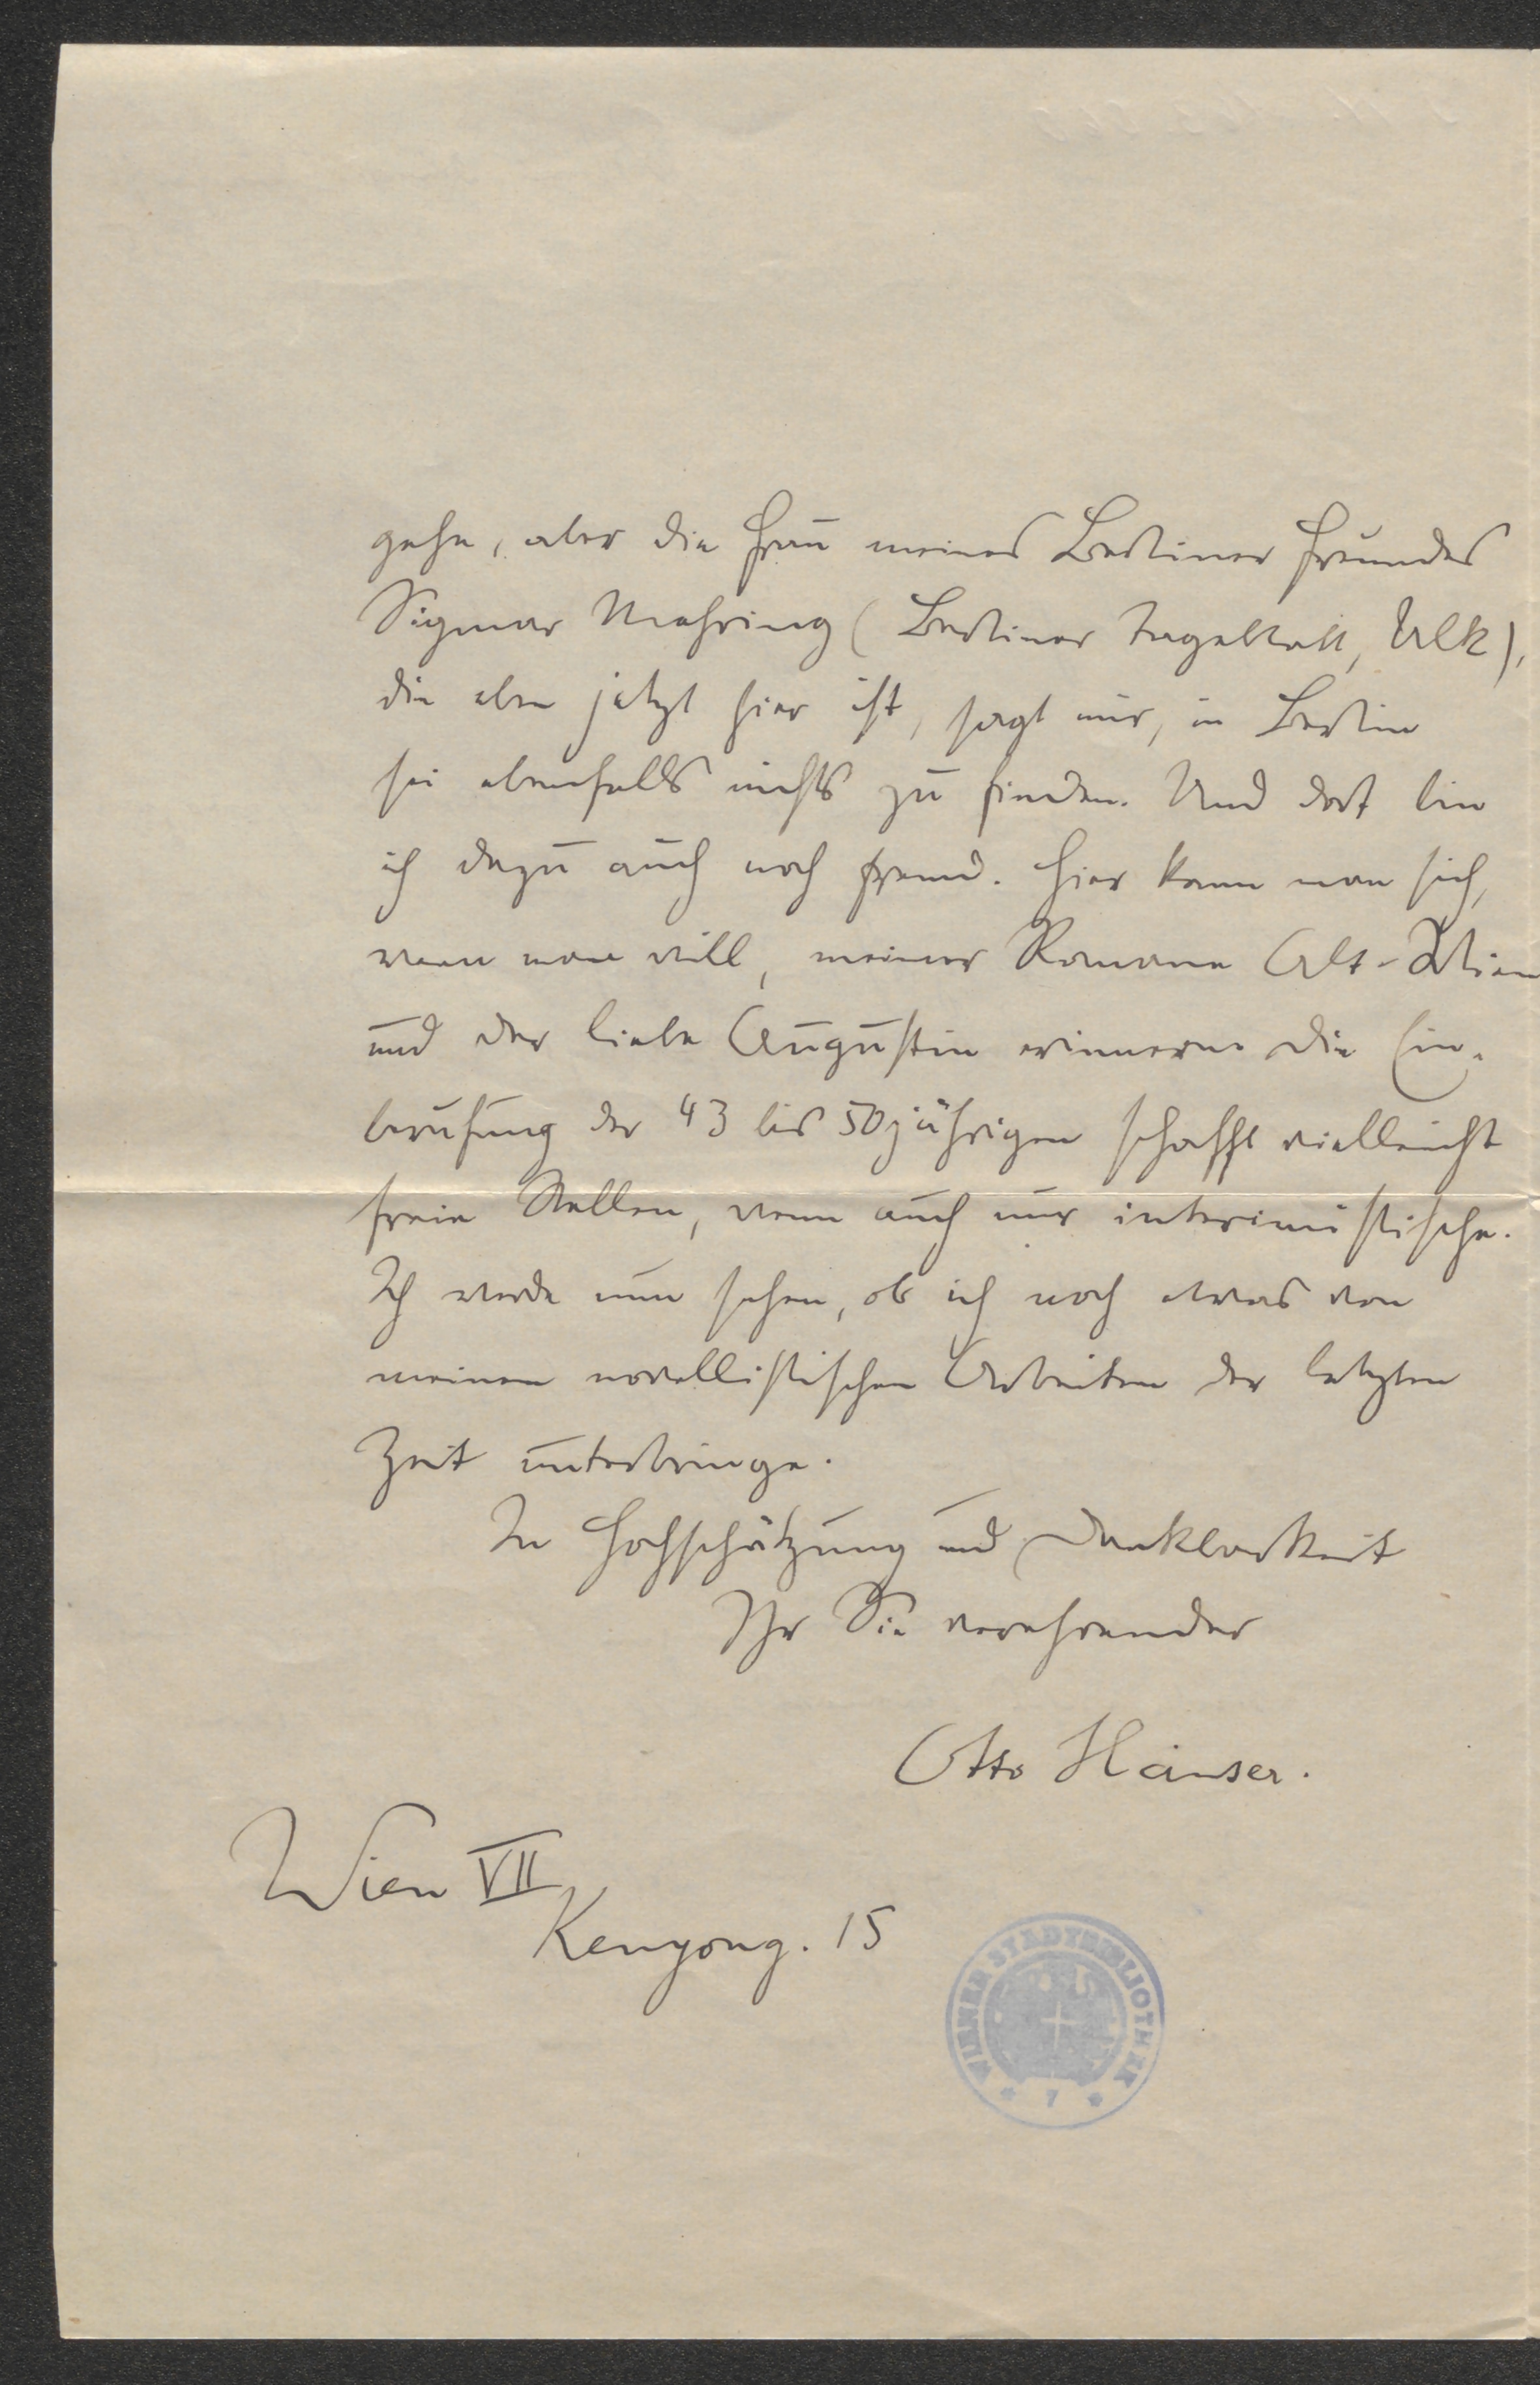 gehe, aber die Frau meines Berliner Freundes
Sigmar Mehring (Berliner Tageblatt, Ulk),
die eben jetzt hier ist, sagt mir, in Berlin
sei ebenfalls nichts zu finden. Und dort bin
ich dazu auch noch fremd. Hier kann man sich,
wenn man will, meiner Romane Alt-Wien
und der liebe Augustin erinnern. Die Ein-
berufung der 43 bis 50jährigen schafft vielleicht
freie Stellen, wenn auch nur interimistische.
Ich werde nun sehen, ob ich noch etwas von
meinen novellistischen Arbeiten der letzten
Zeit unterbringe.
In Hochschätzung und Dankbarkeit
Ihr Sie verehrender
Otto Hauser.
Wien VII
Kenyong. 15
WIENER STADTBIBLIOTHEK
* 7 *